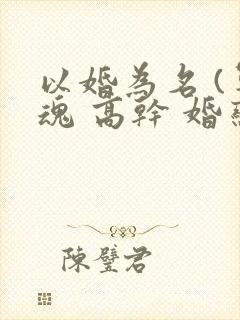 以婚為名(
魂 高幹 婚
陳璧君